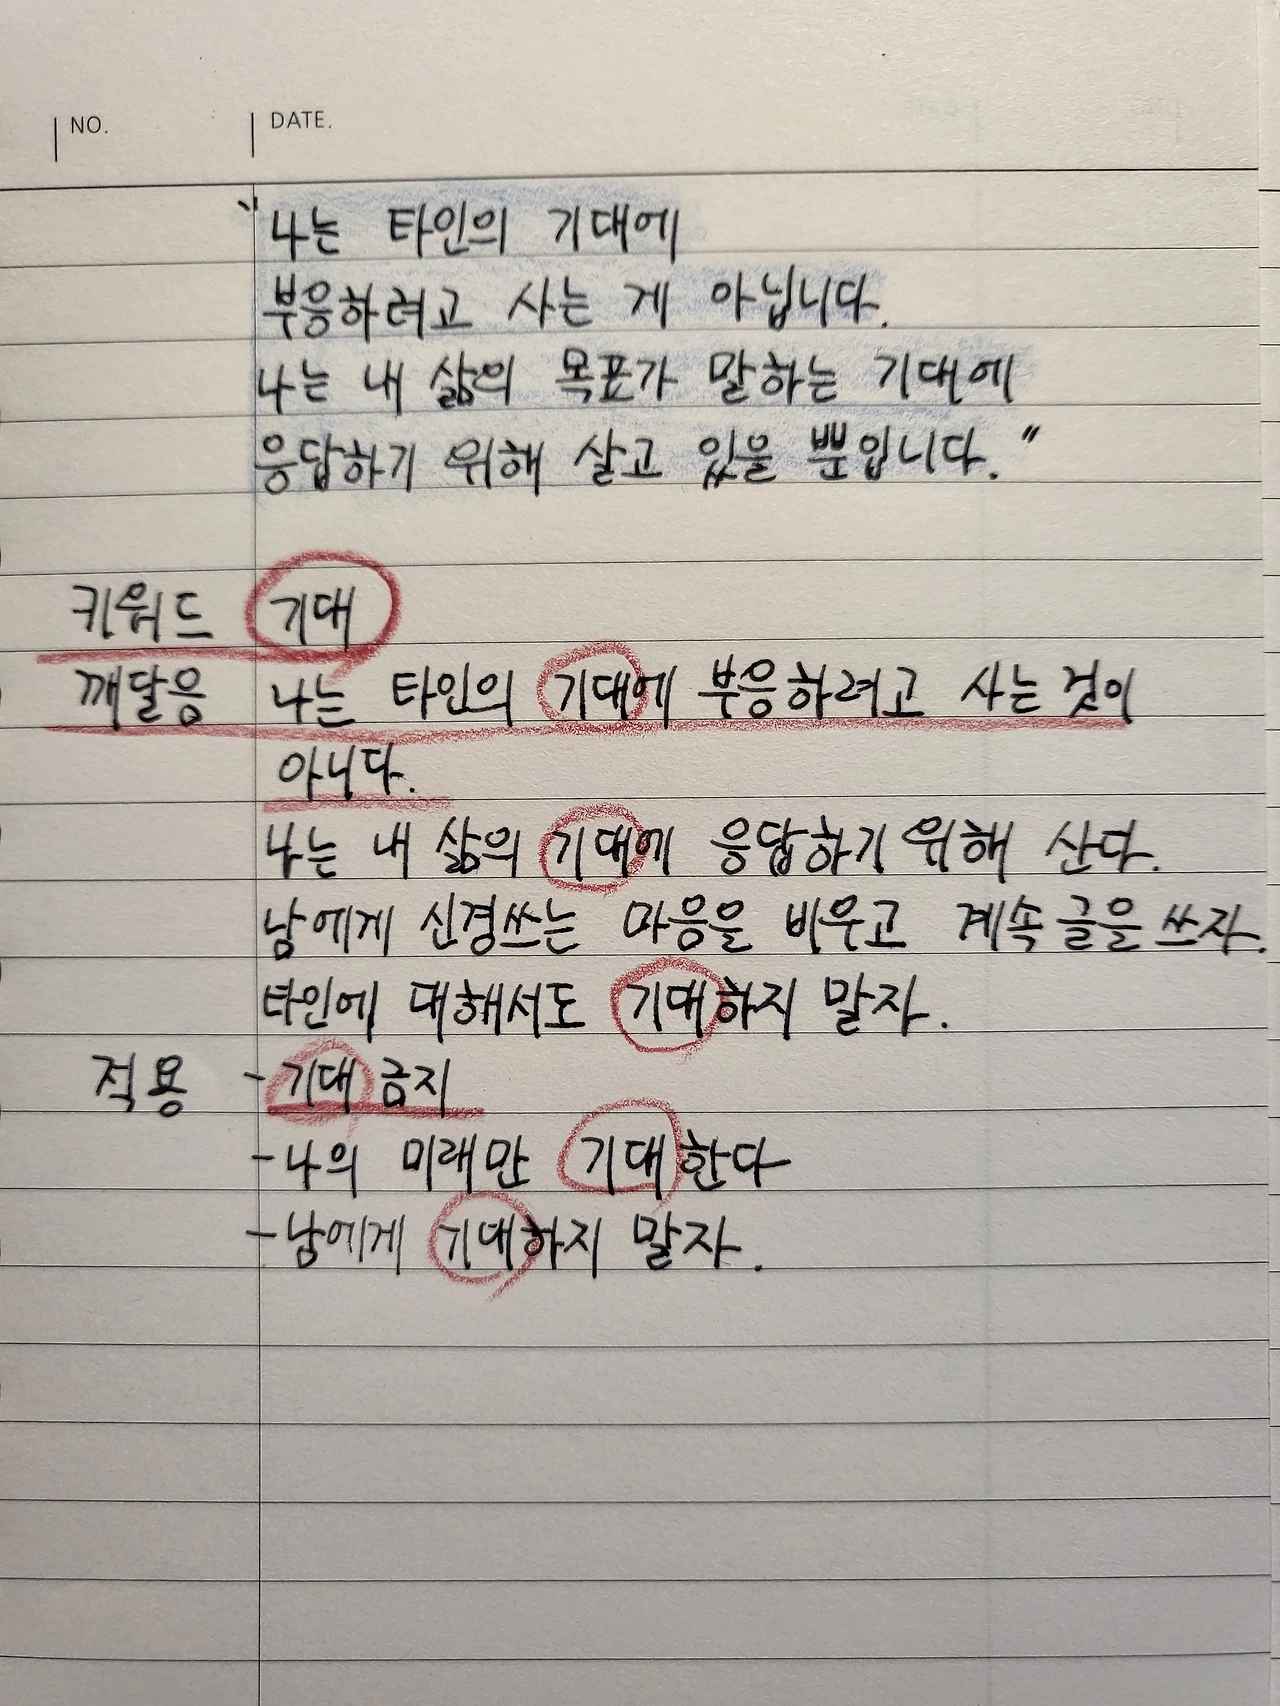 NO. DATE.
"나는 타인의 기대에
부응하려고 사는 게 아닙니다.
나는 내 삶의 목표가 말하는 기대에
응답하기 위해 살고 있을 뿐입니다."
키워드 기대
깨달음 나는 타인의 기대에 부응하려고 사는 것이
아니다.
나는 내 삶의 기대에 응답하기 위해 산다.
남에게 신경쓰는 마음을 비우고 계속 글을 쓰자.
타인에 대해서도 기대하지 말자.
적용 - 기대 금지
- 나의 미래만 기대한다
- 남에게 기대하지 말자.